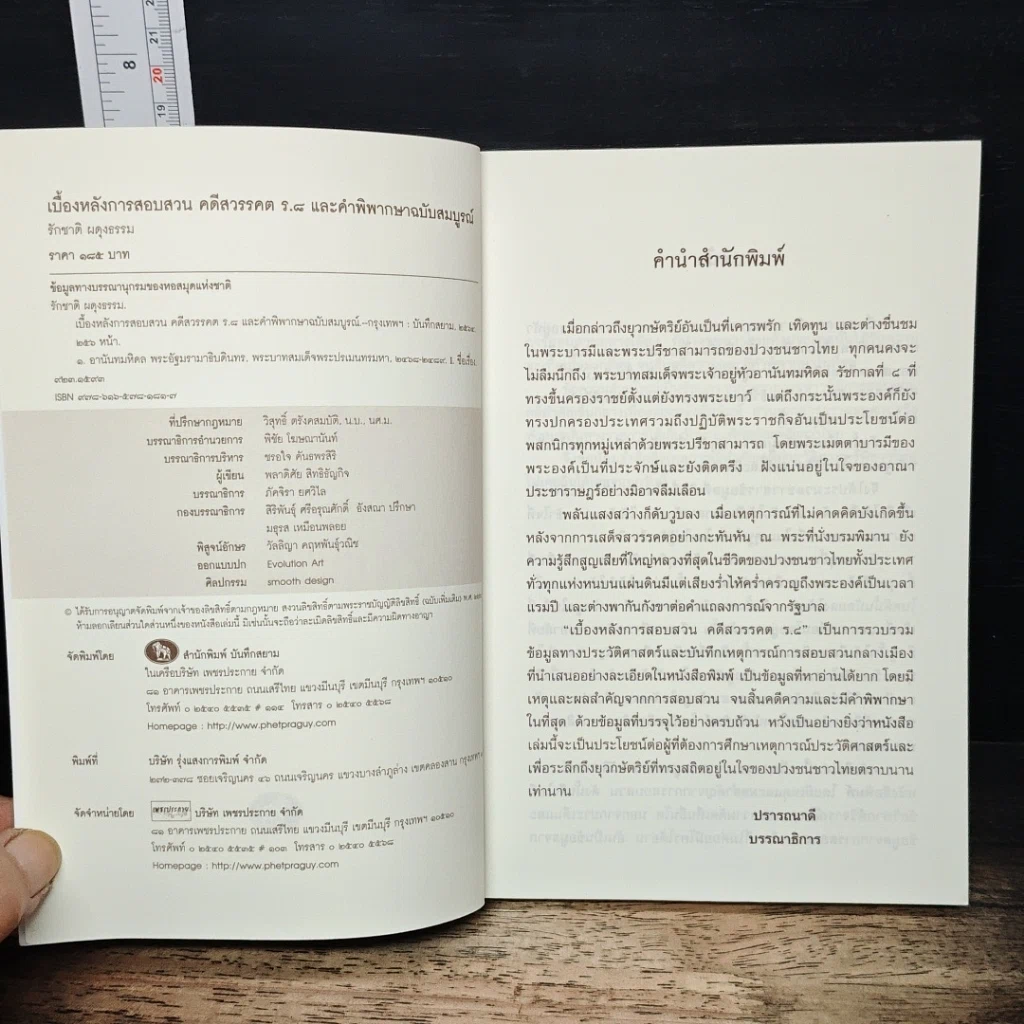 8
21
20
19
เบื้องหลังการสอบสวน คดีสวรรคต ร.๘ และคำพิพากษาฉบับสมบูรณ์
รักชาติ ผดุงธรรม
ราคา ๑๘๕ บาท
ข้อมูลทางบรรณานุกรมของหอสมุดแห่งชาติ
รักชาติ ผดุงธรรม.
เบื้องหลังการสอบสวน คดีสวรรคต ร.๘ และคำพิพากษาฉบับสมบูรณ์.--กรุงเทพฯ : บันทึกสยาม,
๒๕๖ หน้า.
๑. อานันทมหิดล พระอัฐมรามาธิบดินทร, พระบาทสมเด็จพระปรเมนทรมหา, ๒๔๖๘-๒๔๘๙. I. ชื่อเรื่อง.
๙๒๓.๑๕๙๓
ISBN ๙๗๘-๖๑๖-๕๗๘-๑๘๑-๗
ที่ปรึกษากฎหมาย วิสุทธิ์ ตรังคสมบัติ, น.บ., นศ.ม.
บรรณาธิการอำนวยการ พิชัย โฆษณานันท์
บรรณาธิการบริหาร ชรอใจ คันธพรสิริ
ผู้เขียน พลาดิศัย สิทธิธัญกิจ
บรรณาธิการ ภัคจิรา ยศวิไล
กองบรรณาธิการ สิริพันธุ์ ศรีอรุณศักดิ์ อังสณา ปรึกษา
มธุรส เหมือนพลอย
พิสูจน์อักษร วัลลิญา คฤหพันธุ์วณิช
ออกแบบปก Evolution Art
ศิลปกรรม smooth design
© ได้รับการอนุญาตจัดพิมพ์จากเจ้าของลิขสิทธิ์ตามกฎหมาย สงวนลิขสิทธิ์ตามพระราชบัญญัติลิขสิทธิ์ (ฉบับเพิ่มเติม) พ.ศ.
ห้ามลอกเลียนส่วนใดส่วนหนึ่งของหนังสือเล่มนี้ มิเช่นนั้นจะถือว่าละเมิดลิขสิทธิ์และมีความผิดทางอาญา
จัดพิมพ์โดย สำนักพิมพ์ บันทึกสยาม
ในเครือบริษัท เพชรประกาย จำกัด
๘๑ อาคารเพชรประกาย ถนนเสรีไทย แขวงมีนบุรี เขตมีนบุรี กรุงเทพฯ ๑๐๕๑๐
โทรศัพท์ ๐ ๒๕๔๐ ๕๕๓๕ # ๑๑๔ โทรสาร ๐ ๒๕๔๐ ๕๕๖๘
Homepage : http://www.phetpraguy.com
พิมพ์ที่ บริษัท รุ่งแสงการพิมพ์ จำกัด
๒๓๒-๓๓๘ ซอยเจริญนคร ๔๖ ถนนเจริญนคร แขวงบางลำภูล่าง เขตคลองสาน
จัดจำหน่ายโดย เพชรประกาย บริษัท เพชรประกาย จำกัด
๘๑ อาคารเพชรประกาย ถนนเสรีไทย แขวงมีนบุรี เขตมีนบุรี กรุงเทพฯ ๑๐๕๑๐
โทรศัพท์ ๐ ๒๕๔๐ ๕๕๓๕ # ๑๐๓ โทรสาร ๐ ๒๕๔๐ ๕๕๖๘
Homepage : http://www.phetpraguy.com
คำนำสำนักพิมพ์
เมื่อกล่าวถึงยุวกษัตริย์อันเป็นที่เคารพรัก เทิดทูน และต่างชื่นชม
ในพระบารมีและพระปรีชาสามารถของปวงชนชาวไทย ทุกคนคงจะ
ไม่ลืมนึกถึง พระบาทสมเด็จพระเจ้าอยู่หัวอานันทมหิดล รัชกาลที่ ๘ ที่
ทรงขึ้นครองราชย์ตั้งแต่ยังทรงพระเยาว์ แต่ถึงกระนั้นพระองค์ก็ยัง
ทรงปกครองประเทศรวมถึงปฏิบัติพระราชกิจอันเป็นประโยชน์ต่อ
พสกนิกรทุกหมู่เหล่าด้วยพระปรีชาสามารถ โดยพระเมตตาบารมีของ
พระองค์เป็นที่ประจักษ์และยังติดตรึง ฝังแน่นอยู่ในใจของอาณา
ประชาราษฎร์อย่างมิอาจลืมเลือน
พลันแสงสว่างก็ดับวูบลง เมื่อเหตุการณ์ที่ไม่คาดคิดบังเกิดขึ้น
หลังจากการเสด็จสวรรคตอย่างกะทันหัน ณ พระที่นั่งบรมพิมาน ยัง
ความรู้สึกสูญเสียที่ใหญ่หลวงที่สุดในชีวิตของปวงชนชาวไทยทั้งประเทศ
ทั่วทุกแห่งหนบนแผ่นดินมีแต่เสียงร่ำไห้คร่ำครวญถึงพระองค์เป็นเวลา
แรมปี และต่างพากันกังขาต่อคำแถลงการณ์จากรัฐบาล
“เบื้องหลังการสอบสวน คดีสวรรคต ร.๘” เป็นการรวบรวม
ข้อมูลทางประวัติศาสตร์และบันทึกเหตุการณ์การสอบสวนกลางเมือง
ที่นำเสนออย่างละเอียดในหนังสือพิมพ์ เป็นข้อมูลที่หาอ่านได้ยาก โดยมี
เหตุและผลสำคัญจากการสอบสวน จนสิ้นคดีความและมีคำพิพากษา
ในที่สุด ด้วยข้อมูลที่บรรจุไว้อย่างครบถ้วน หวังเป็นอย่างยิ่งว่าหนังสือ
เล่มนี้จะเป็นประโยชน์ต่อผู้ที่ต้องการศึกษาเหตุการณ์ประวัติศาสตร์และ
เพื่อระลึกถึงยุวกษัตริย์ที่ทรงสถิตอยู่ในใจของปวงชนชาวไทยตราบนาน
เท่านาน
ปรารถนาดี
บรรณาธิการ